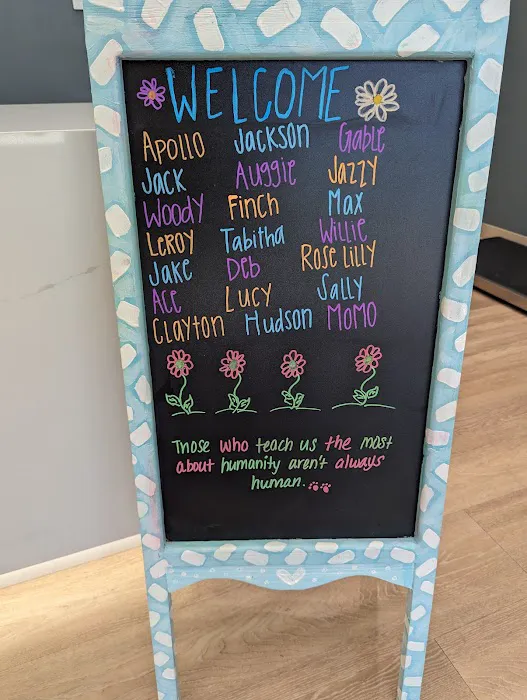 WELCOME
Apollo Jackson Gable
Jack Auggie Jazzy
Woody Finch Max
Leroy Tabitha Willie
Jake Deb Rose Lilly
Ace Lucy Sally
Clayton Hudson MOMO
Those who teach us the most
about humanity aren't always
human...